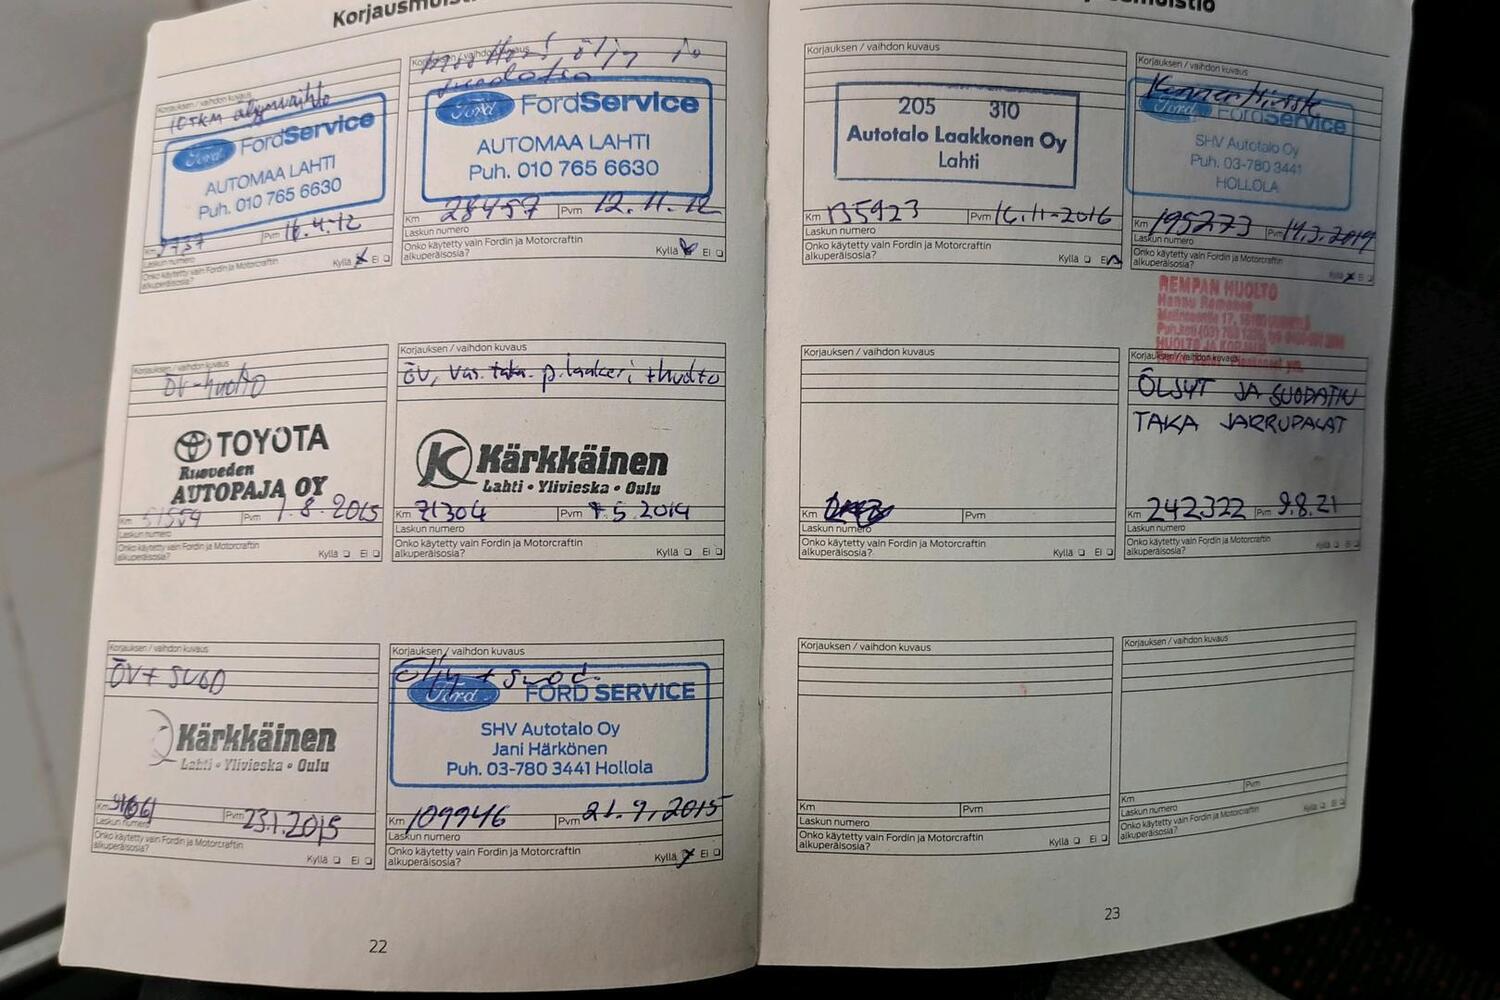 Korjausmuistio
Korjauksen / vaihdon kuvaus
10TKM öljynvaihto
Ford FordService
AUTOMAA LAHTI
Puh. 010 765 6630
Km Pvm 16.4.12
Laskun numero
Onko käytetty vain Fordin ja Motorcraftin
alkuperäisosia? Kyllä Ei
Korjauksen / vaihdon kuvaus
Moottori öljy ja
suodatin
Ford FordService
AUTOMAA LAHTI
Puh. 010 765 6630
Km 28457 Pvm 12.11.12
Laskun numero
Onko käytetty vain Fordin ja Motorcraftin
alkuperäisosia? Kyllä Ei
Korjauksen / vaihdon kuvaus
ÖV-huolto
TOYOTA
Ruoveden
AUTOPAJA OY
Km 51554 Pvm 1.8.2015
Laskun numero
Onko käytetty vain Fordin ja Motorcraftin
alkuperäisosia? Kyllä Ei
Korjauksen / vaihdon kuvaus
ÖV, vas. taka. p.laakeri +huolto
K Kärkkäinen
Lahti • Ylivieska • Oulu
Km 71304 Pvm 7.5.2014
Laskun numero
Onko käytetty vain Fordin ja Motorcraftin
alkuperäisosia? Kyllä Ei
Korjauksen / vaihdon kuvaus
ÖV + SUOD
Kärkkäinen
Lahti • Ylivieska • Oulu
Km Pvm 23.1.2015
Laskun numero
Onko käytetty vain Fordin ja Motorcraftin
alkuperäisosia? Kyllä Ei
Korjauksen / vaihdon kuvaus
Öljy + Suod.
Ford FORD SERVICE
SHV Autotalo Oy
Jani Härkönen
Puh. 03-780 3441 Hollola
Km 109946 Pvm 21.9.2015
Laskun numero
Onko käytetty vain Fordin ja Motorcraftin
alkuperäisosia? Kyllä Ei
22
Korjauksen / vaihdon kuvaus
205 310
Autotalo Laakkonen Oy
Lahti
Km 135923 Pvm 16.11-2016
Laskun numero
Onko käytetty vain Fordin ja Motorcraftin
alkuperäisosia? Kyllä Ei
Korjauksen / vaihdon kuvaus
Ford FordService
SHV Autotalo Oy
Puh. 03-780 3441
HOLLOLA
Km 195273 Pvm 14.3.2019
Laskun numero
Onko käytetty vain Fordin ja Motorcraftin
alkuperäisosia? Kyllä Ei
REMPAN HUOLTO
Hannu Romonen
Korjauksen / vaihdon kuvaus
Km Pvm
Laskun numero
Onko käytetty vain Fordin ja Motorcraftin
alkuperäisosia? Kyllä Ei
Korjauksen / vaihdon kuvaus
ÖLJYT JA SUODATIN
TAKA JARRUPALAT
Km 242322 Pvm 9.8.21
Laskun numero
Onko käytetty vain Fordin ja Motorcraftin
alkuperäisosia? Kyllä Ei
Korjauksen / vaihdon kuvaus
Km Pvm
Laskun numero
Onko käytetty vain Fordin ja Motorcraftin
alkuperäisosia? Kyllä Ei
Korjauksen / vaihdon kuvaus
Km Pvm
Laskun numero
Onko käytetty vain Fordin ja Motorcraftin
alkuperäisosia? Kyllä Ei
23